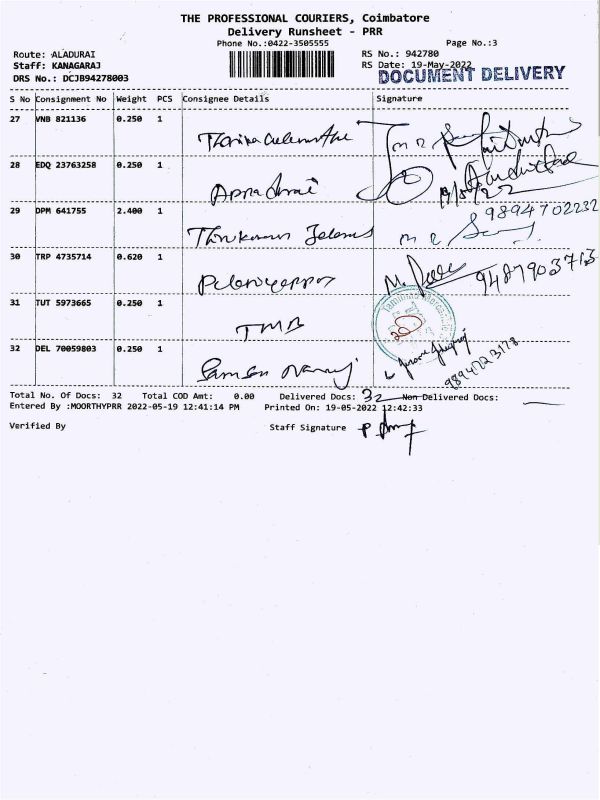 THE PROFESSIONAL COURIERS, Coimbatore
Delivery Runsheet - PRR
Phone No.:0422-3505555
Page No.:3
Route: ALADURAI
RS No.: 942780
Staff: KANAGARAJ
RS Date: 19-May-2022
DRS No.: DCJB94278003
DOCUMENT DELIVERY
S No Consignment No Weight PCS Consignee Details Signature
27 VNB 821136 0.250 1
28 EDQ 23763258 0.250 1
19/05/22
29 DPM 641755 2.400 1 9894702232
30 TRP 4735714 0.620 1 9487903713
31 TUT 5973665 0.250 1 TMB
32 DEL 70059803 0.250 1 9894723178
Total No. Of Docs: 32 Total COD Amt: 0.00 Delivered Docs: 32 Non Delivered Docs:
Entered By :MOORTHYPRR 2022-05-19 12:41:14 PM Printed On: 19-05-2022 12:42:33
Verified By Staff Signature